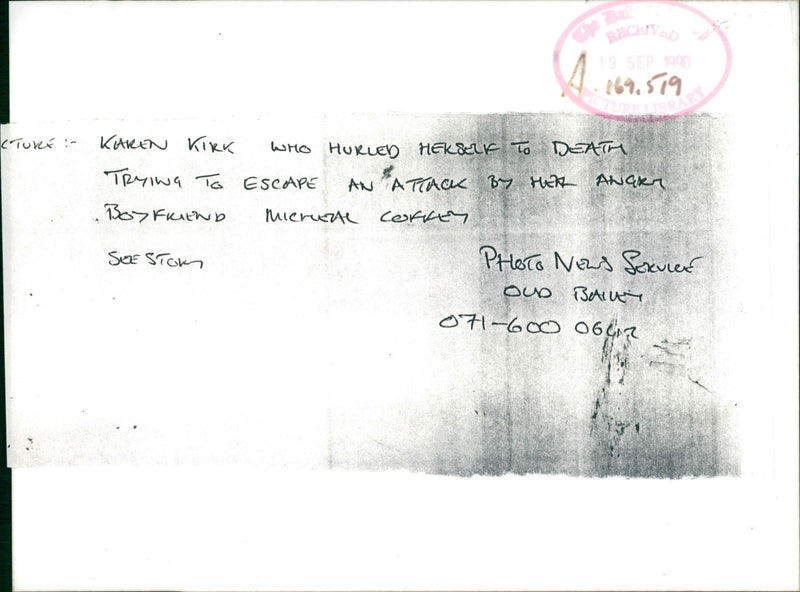 RECEIVED
19 SEP 1990
A.169.519
PICTURE LIBRARY
CTURE:- KAREN KIRK WHO HURLED HERSELF TO DEATH
TRYING TO ESCAPE AN ATTACK BY HER ANGRY
BOYFRIEND MICHEAL COFFEY
SEE STORY
PHOTO NEWS SERVICE
OLD BAILEY
071-600 0642